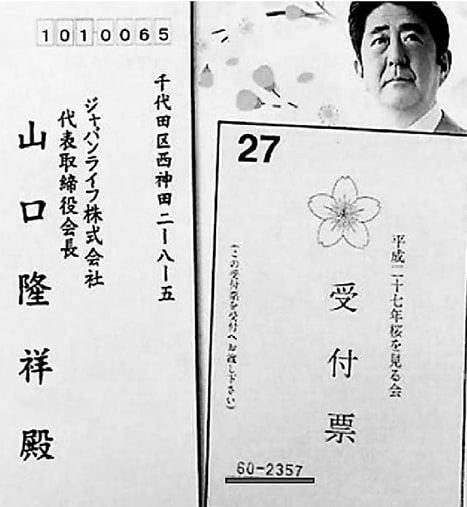 1010065
千代田区西神田二ー八ー五
ジャパンライフ株式会社
代表取締役会長
山口隆祥殿
27
平成二十七年桜を見る会
受付票
(この受付票を受付へお渡し下さい)
60-2357